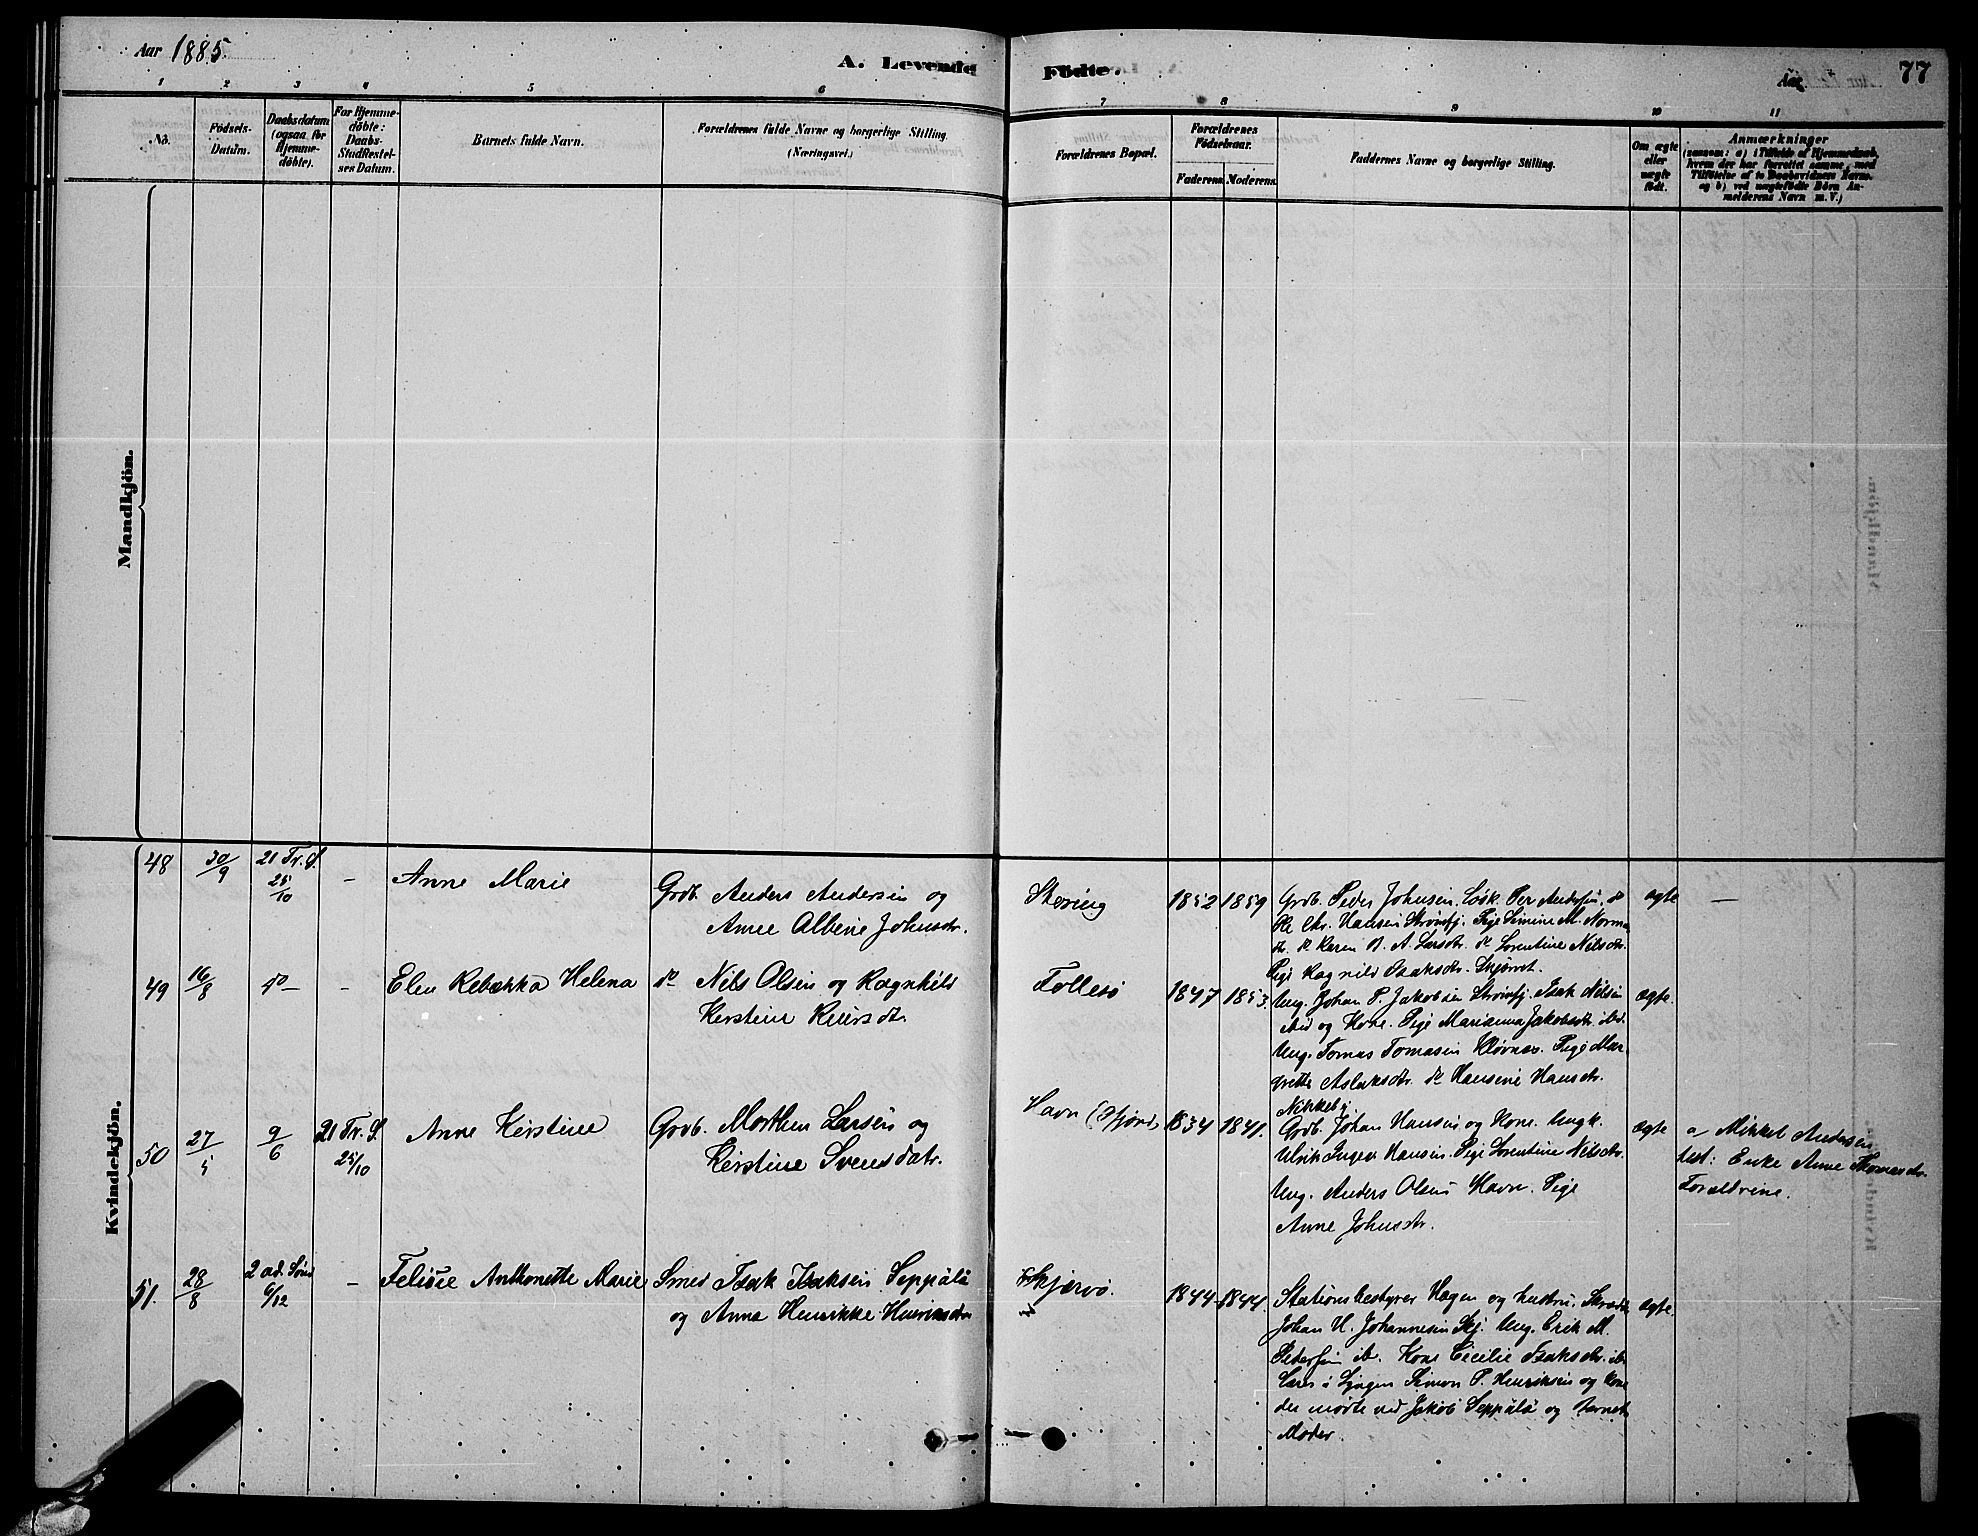 Aar 1885.
A. Levende
Födte.
Aar
77
1 2 3 4 5 6
7 8 9 10 11
No.
Födsels-
Datum.
Daabsdatum
(ogsaa for
Hjemme-
döbte).
For Hjemme-
döbte:
Daabs-
Stadfestel-
ses Datum.
Barnets fulde Navn.
Forældrenes fulde Navne og borgerlige Stilling.
(Næringsvei.)
Forældrenes Bopæl.
Forældrenes
Födselsaar.
Faderens. Moderens.
Faddernes Navne og borgerlige Stilling.
Om ægte
eller
uægte
födt.
Anmærkninger
(saasom: a) i Tilfælde af Hjemmedaab,
hvem der har forrettet samme, med
Tilföielse af to Daabsvidners Navne,
og b) ved uægtefödte Börn An-
melderens Navn m. V.)
Mandkjön.
Kvindekjön.
48
30/9
21 Tr. S.
25/10
-
Anne Marie
Grdb. Anders Andersen og
Anne Albine Johnsdtr.
1852
1859
Grdb. Peder Johnsen. Løsk. Per Andersen. do
Ole Chr. Hansen Strømfj. Pige Simine M. Norma
dtr. do Karen B. A. Larsdtr. do Lorentine Nilsdtr.
Pige Ragnild Isaksdtr. Skjørret.
ægte
-
49
16/8
do -
-
Elen Rebekka Helena
do Nils Olsen og Ragnhild
Kerstine Reiersdtr.
Follesö
1847
1853.
Ung. Johan P. Jakobsen Strømfj. Isak Nilsen
ibid og Kone. Pige Marianna Jakobsdtr. ibd.
Ung. Tomas Tomasen Kløvnes. Pige Mar-
grette Aslaksdtr. do Hansine Hansdtr.
Nikkeby.
ægte.
50
27/5
9/6
21 Tr. S.
25/10
Anne Kerstine
Grdb. Morthen Larsen og
Kerstine Svensdatr.
Havn
1834
1841.
Grdb. Johan Hansen og Kone. Ungk.
Ulrik Inger Hansen. Pige Lorentine Nilsdtr.
Ung. Anders Olsen Havn. Pige
Anne Johnsdtr.
ægte
a, Mikkel Andersen
test: Enke Anne Thomasdtr.
Foraldrene.
51.
28/8
2 ad. Sönd
6/12
-
Felisie Anthonette Marie
Smed Isak Isaksen Seppälä
og Anna Henrikke Henriksdtr
Skjærvö.
1844
1844
Stationsbestyrer Hagen og hustru. Skræd
Johan H. Johannesen Skj. Ung. Erik M.
Pedersen ib. Kone Cecilie Isaksdtr. ib.
Lars i Lyngen Simon P. Henriksen og Kone
der mødte ved Jakob Seppälä og Barnets
Moder.
ægte.